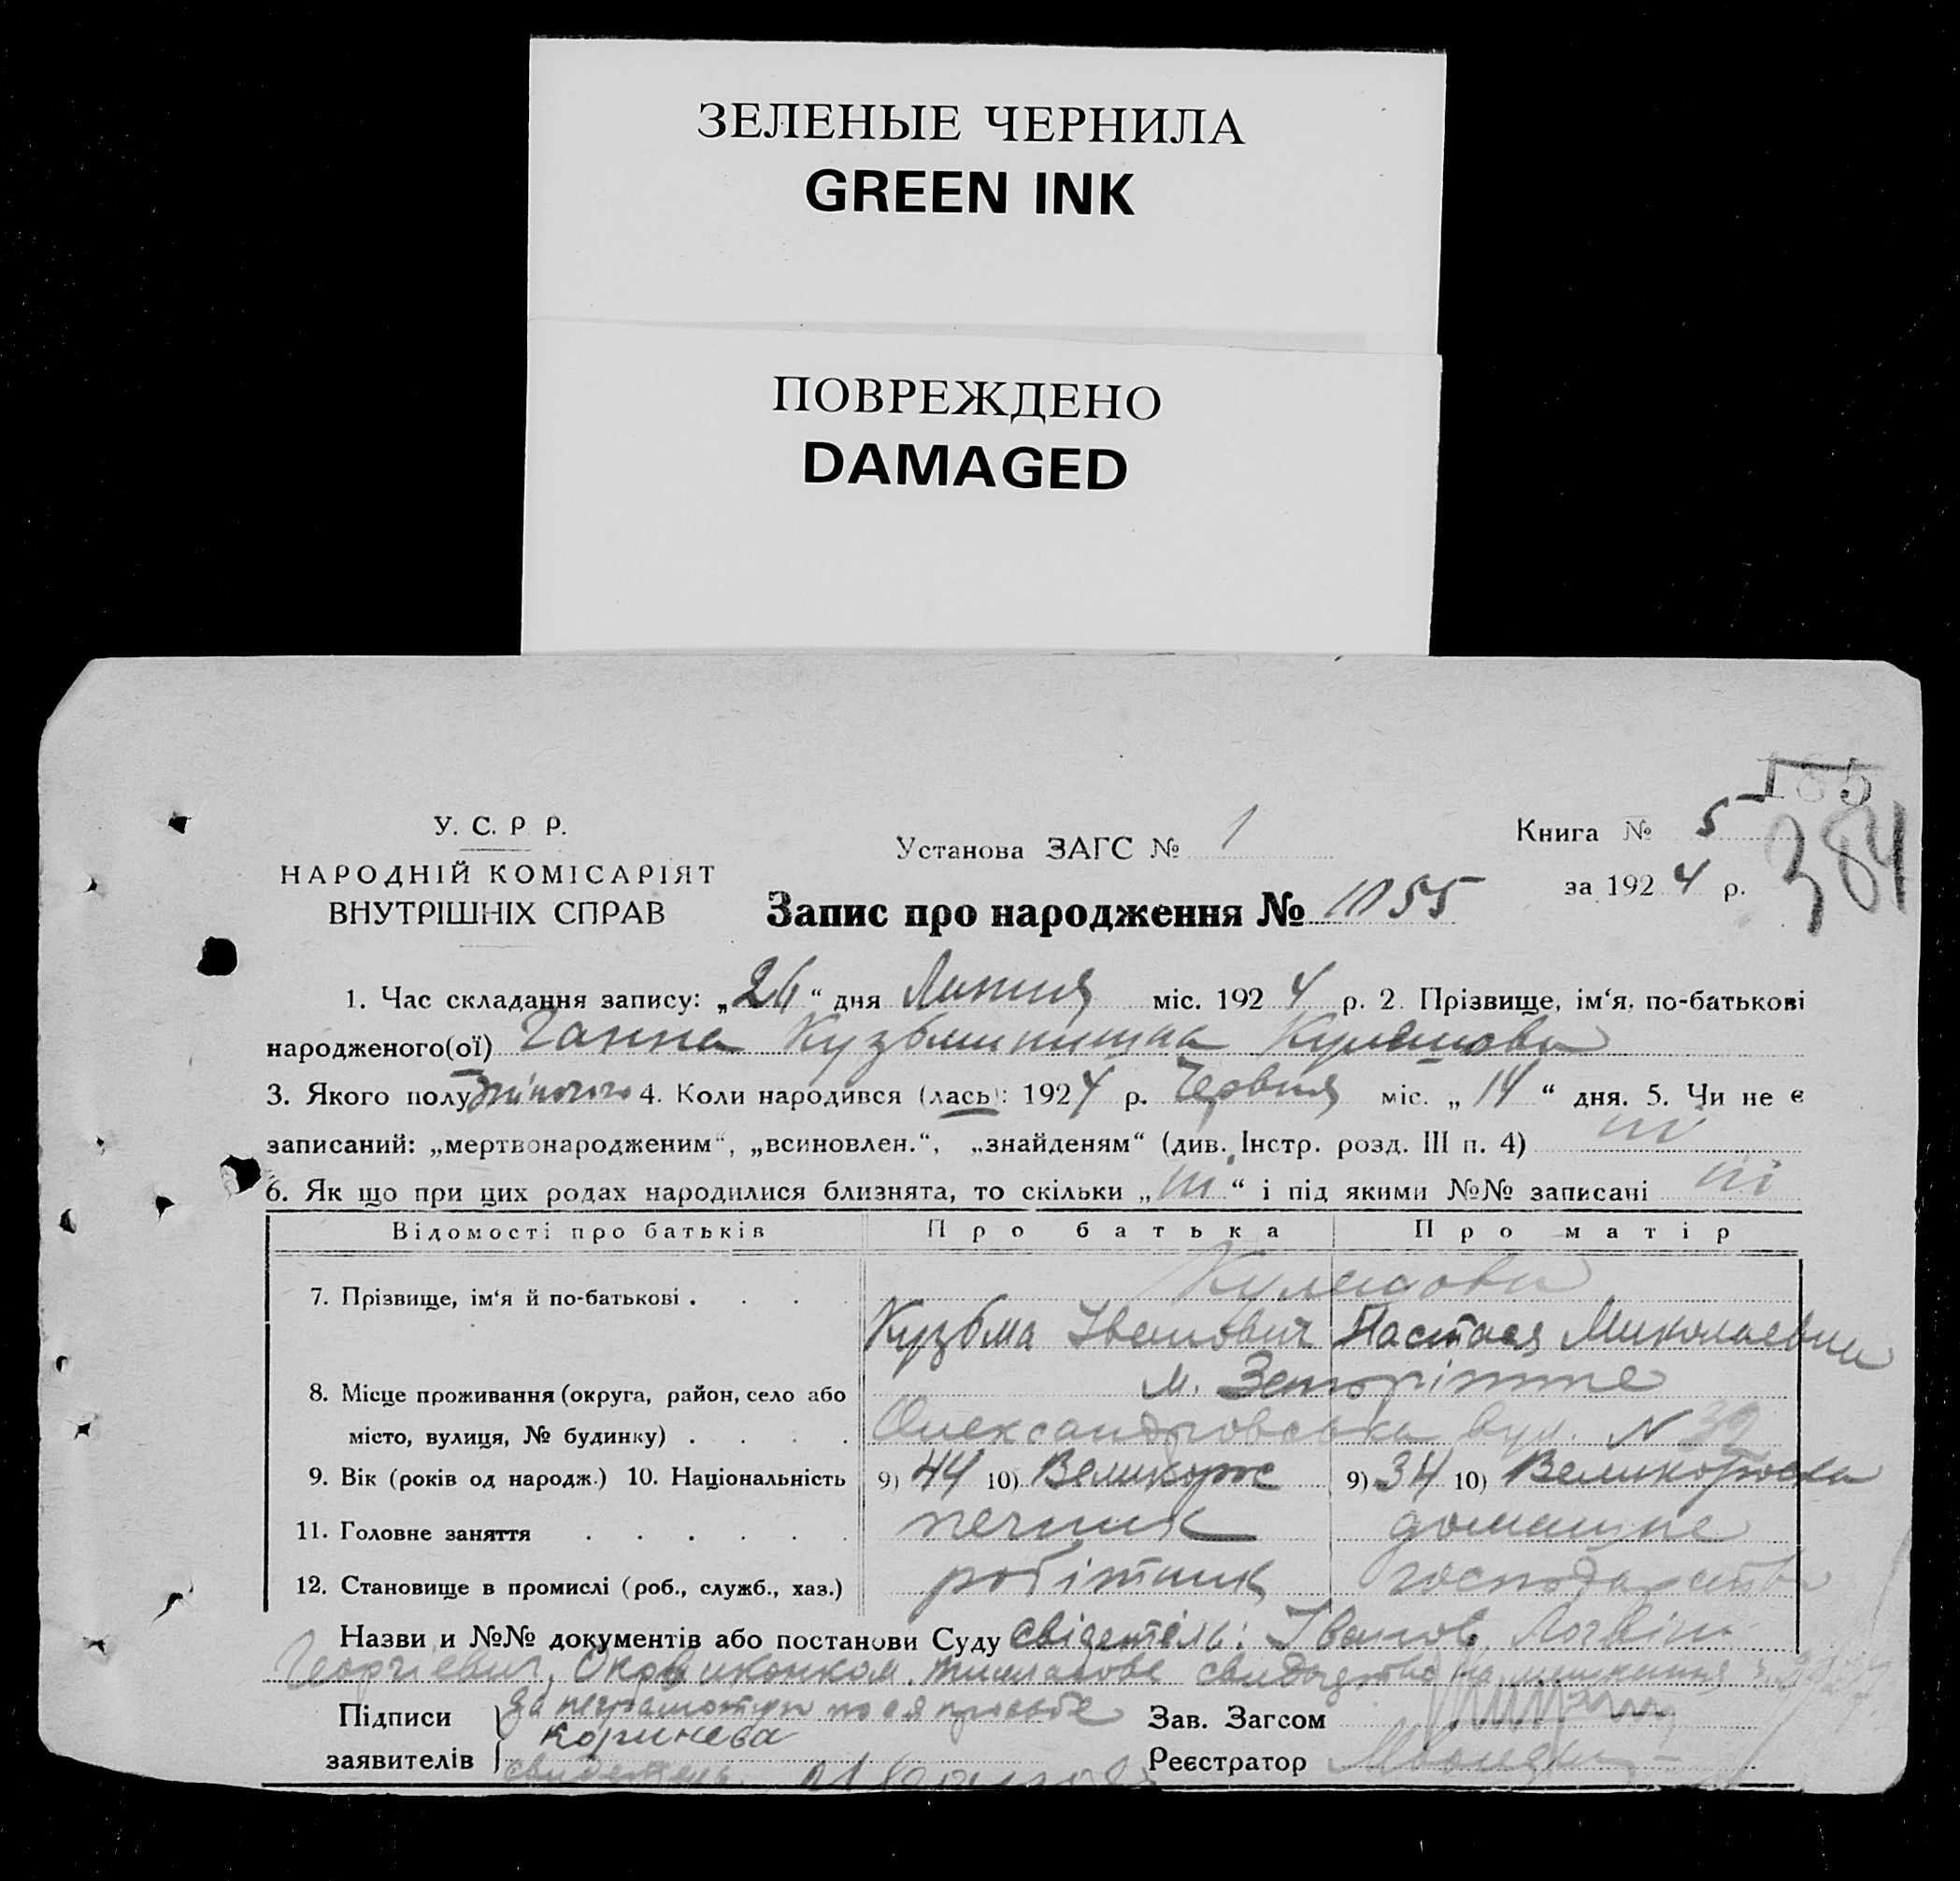 ЗЕЛЕНЫЕ ЧЕРНИЛА
GREEN INK
ПОВРЕЖДЕНО
DAMAGED
185
384
У. С. Р Р.
НАРОДНІЙ КОМІСАРІЯТ
ВНУТРІШНІХ СПРАВ
Установа ЗАГС № 1
Книга № 5
за 1924 р.
Запис про народження № 1055
1. Час складання запису: „26“ дня Липня міс. 1924 р. 2. Прізвище, ім‘я, по-батькові
народженого(ої) Ганна Кулешова
3. Якого полу жіночого 4. Коли народився (лась): 1924 р. Червня міс. „14“ дня. 5. Чи не є
записаний: „мертвонародженим“, „всиновлен.“, „знайденям“ (див. Інстр. розд. III п. 4) ні
6. Як що при цих родах народилися близнята, то скільки „ні“ і під якими №№ записані ні
Відомості про батьків Про батька Про матір
7. Прізвище, ім‘я й по-батькові . . . . Кулешови
Кузьма Іванович Настася Миколаевна
8. Місце проживання (округа, район, село або м. Запоріжже
місто, вулиця, № будинку) . . . . Олександровська вул. N 39
9. Вік (років од народж.) 10. Національність 9) 44 10) Великорос 9) 34 10) Великороска
11. Головне заняття . . . . . . печник домашне
12. Становище в промислі (роб., служб., хаз.) робітник господарство
Назви и №№ документів або постанови Суду свідетель: Іванов Логвін
Георгіевич, Окрвиконком.
Підписи за неграмотную по ея просьбе
заявителів
свидетель
Зав. Загсом
Реєстратор